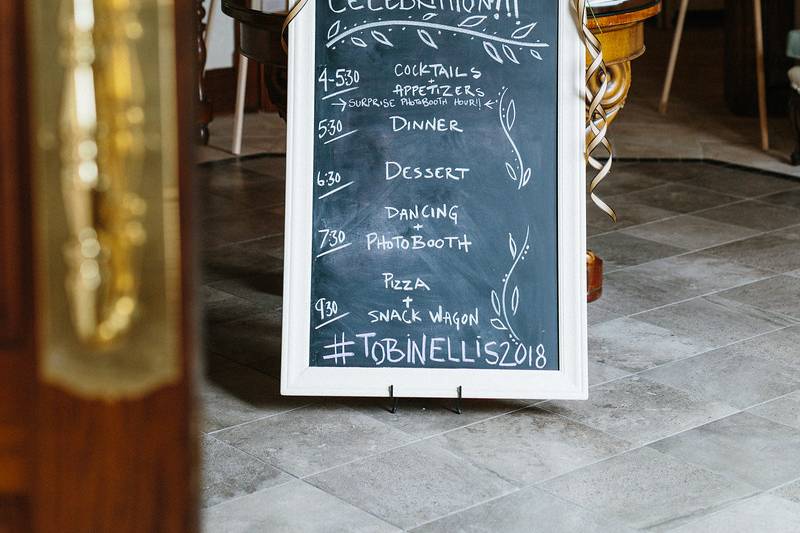 CELEBRATION!!!
4-5:30 COCKTAILS
+
APPETIZERS
→SURPRISE PHOTOBOOTH HOUR!!←
5:30 DINNER
6:30 DESSERT
DANCING
+
7:30 PHOTOBOOTH
PIZZA
+
9:30 SNACK WAGON
#TOBINELLIS2018